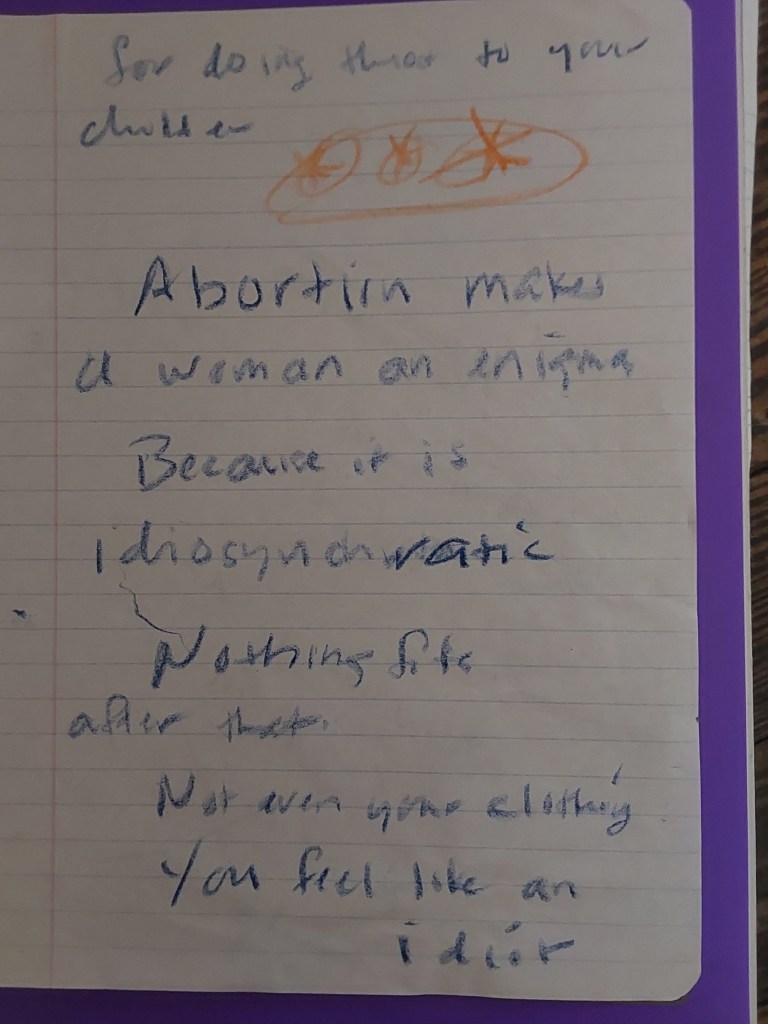 for doing that to your
children
Abortion makes
a woman an enigma
Because it is
idiosynchratic
Nothing fits
after that.
Not even your clothing
You feel like an
idiot